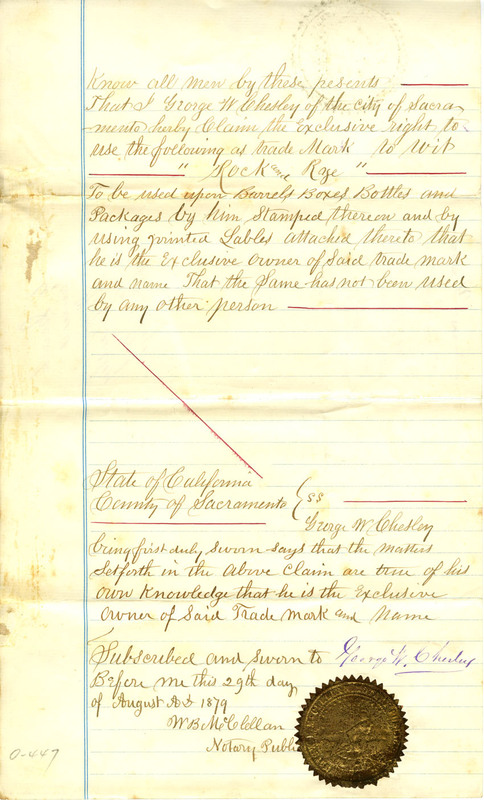 Know all men by these presents
That I George W Chesley of the city of Sacra
mento herby Claim the Exclusive right to
use the following as trade Mark to wit
" Rock and Rye "
To be used upon Barrels Boxes Bottles and
Packages by him Stamped thereon and by
using printed Lables attached thereto that
he is the Exclusive owner of Said trade mark
and name That the Same has not been used
by any other person
State of California
County of Sacramento } SS
George W Chesley
being first duly sworn says that the matters
Setforth in the above Claim are true of his
own Knowledge that he is the Exclusive
owner of Said Trade mark and name
Subscribed and sworn to George W. Chesley
Before me this 29th day
of August AD 1879
W B McClellan
Notary Public
0-447